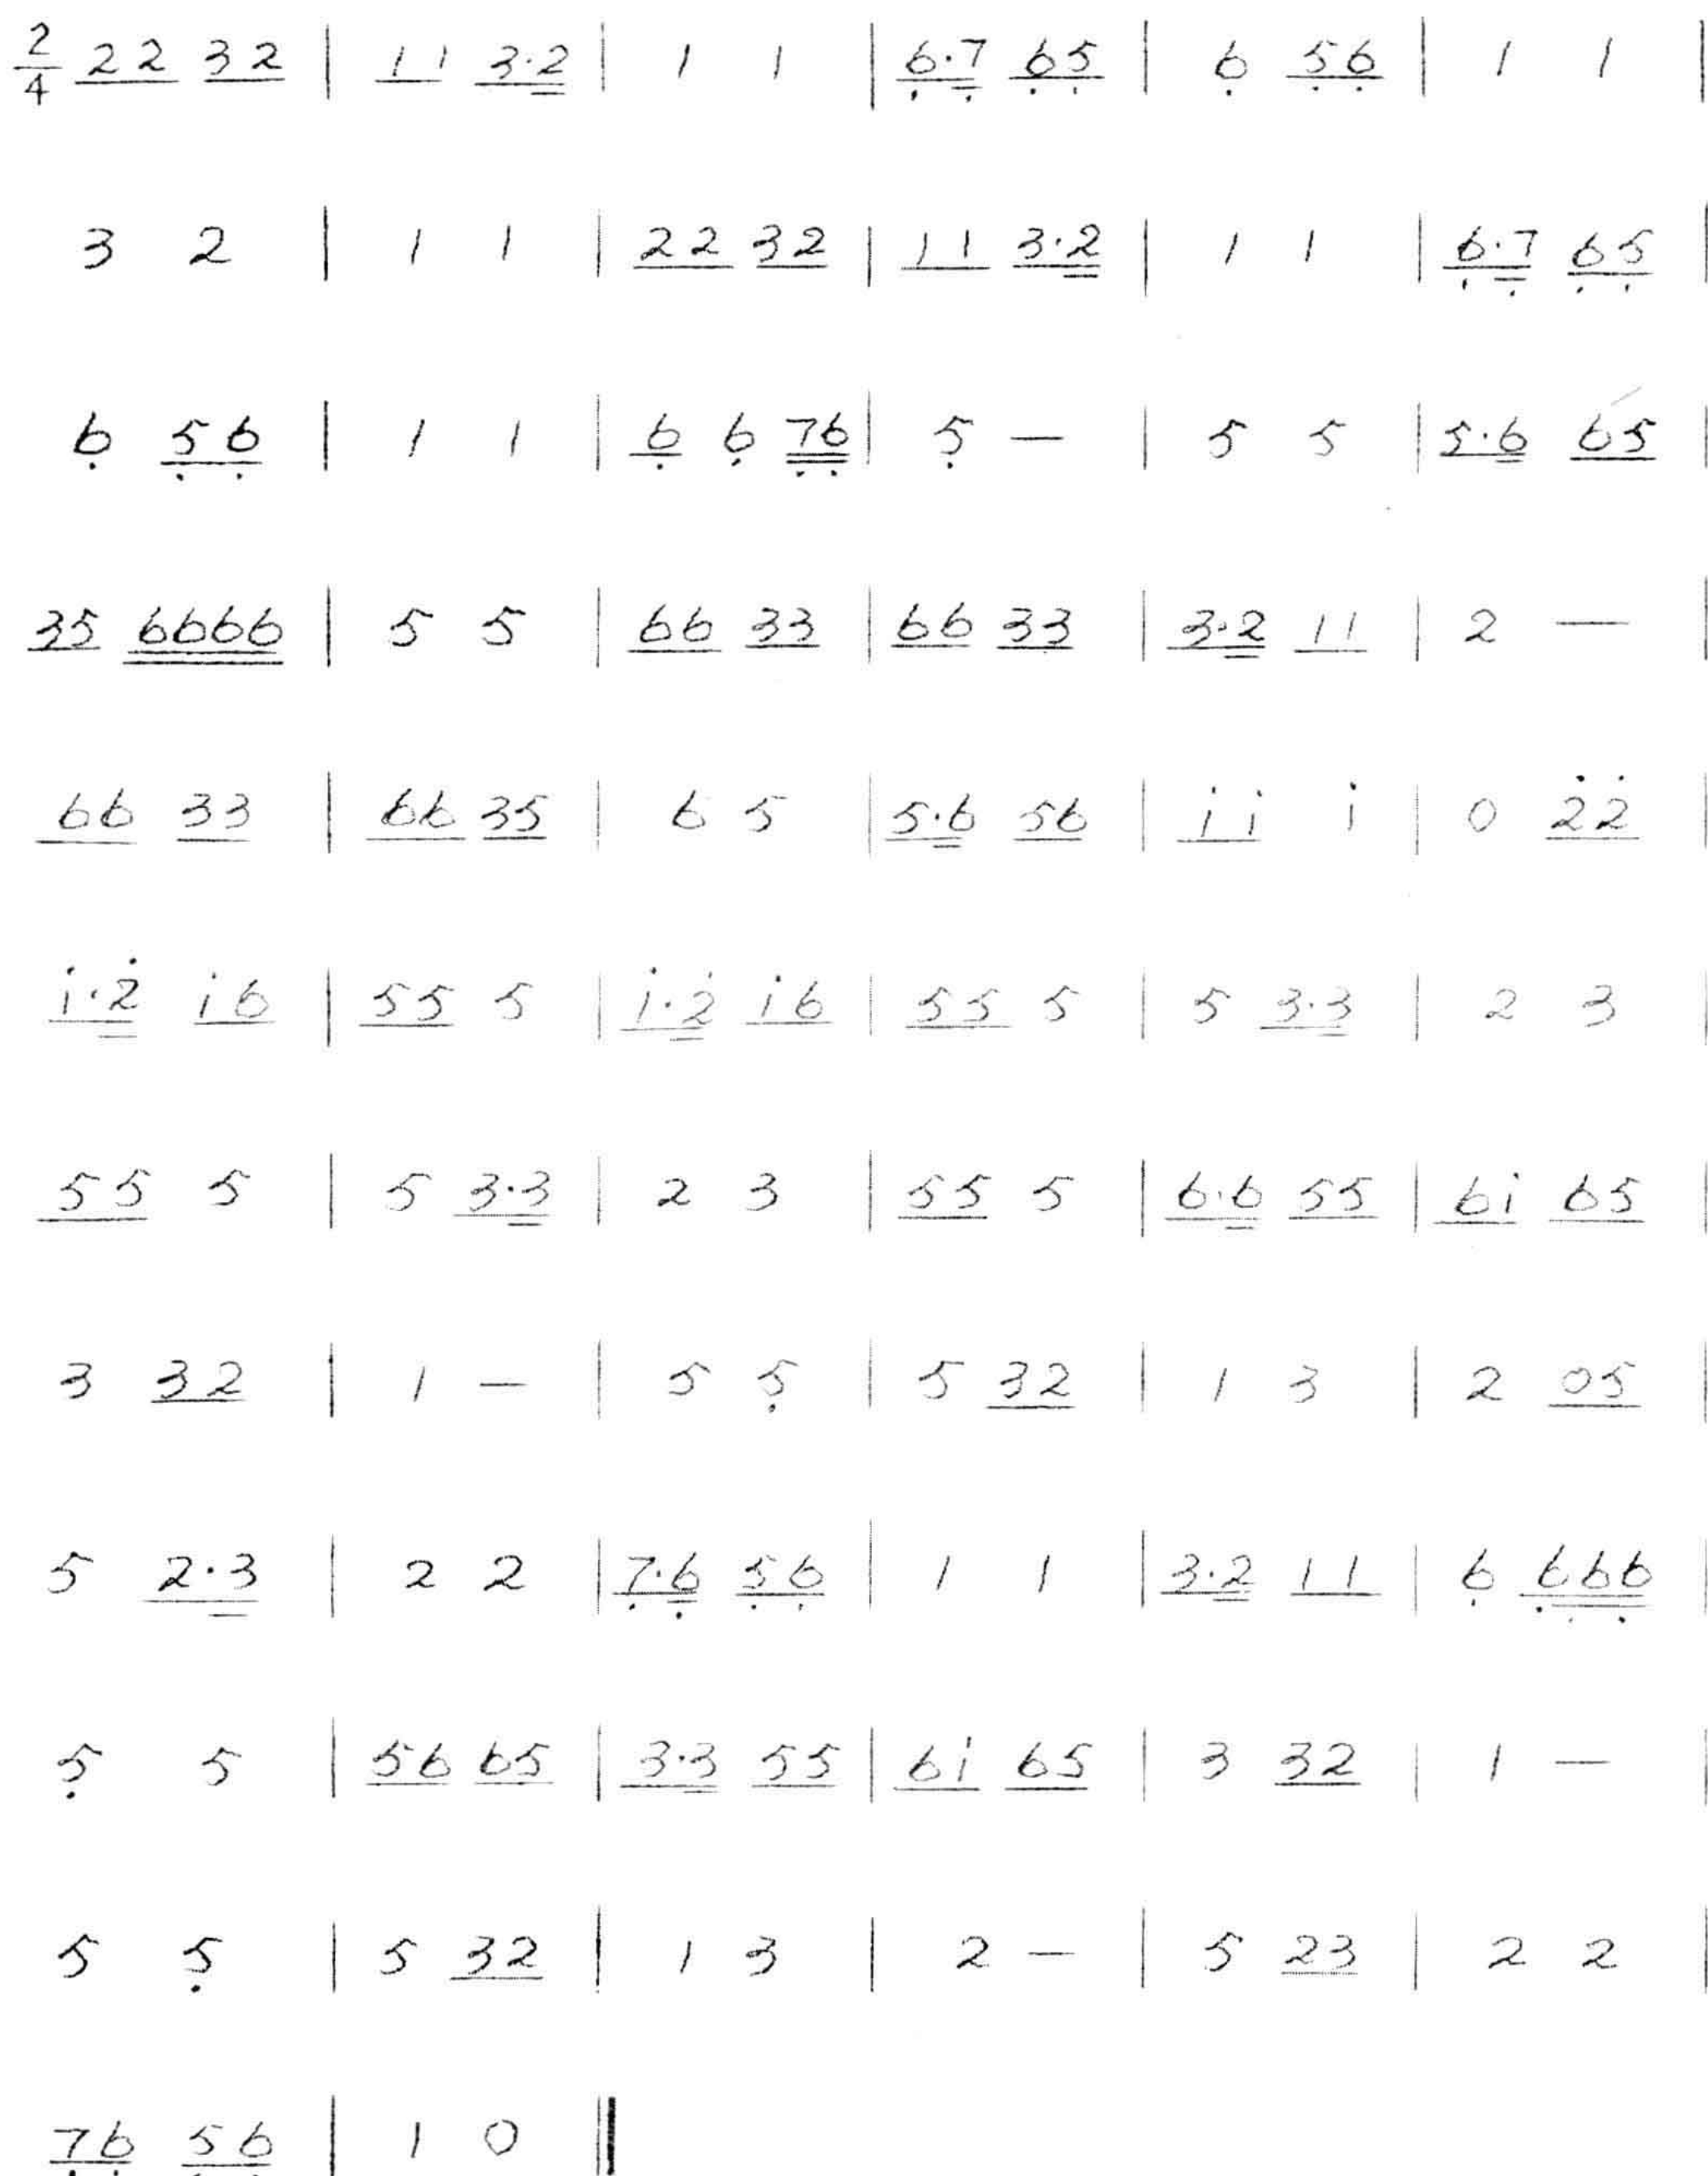 2/4 22 32 | 11 3·2 | 1 1 | 6·7 65 | 6 56 | 1 1 |
3 2 | 1 1 | 22 32 | 11 3·2 | 1 1 | 6·7 65 |
6 56 | 1 1 | 6 6 76 | 5 — | 5 5 | 5·6 65 |
35 6666 | 5 5 | 66 33 | 66 33 | 3·2 11 | 2 — |
66 33 | 66 35 | 6 5 | 5·6 56 | i i i | 0 2̇2̇ |
i·2̇ i6 | 55 5 | i·2̇ i6 | 55 5 | 5 3·3 | 2 3 |
55 5 | 5 3·3 | 2 3 | 55 5 | 6·6 55 | 6i 65 |
3 32 | 1 — | 5 5 | 5 32 | 1 3 | 2 05 |
5 2·3 | 2 2 | 7·6 56 | 1 1 | 3·2 11 | 6 666 |
5 5 | 56 65 | 3·3 55 | 6i 65 | 3 32 | 1 — |
5 5 | 5 32 | 1 3 | 2 — | 5 23 | 2 2 |
76 56 | 1 0 ‖